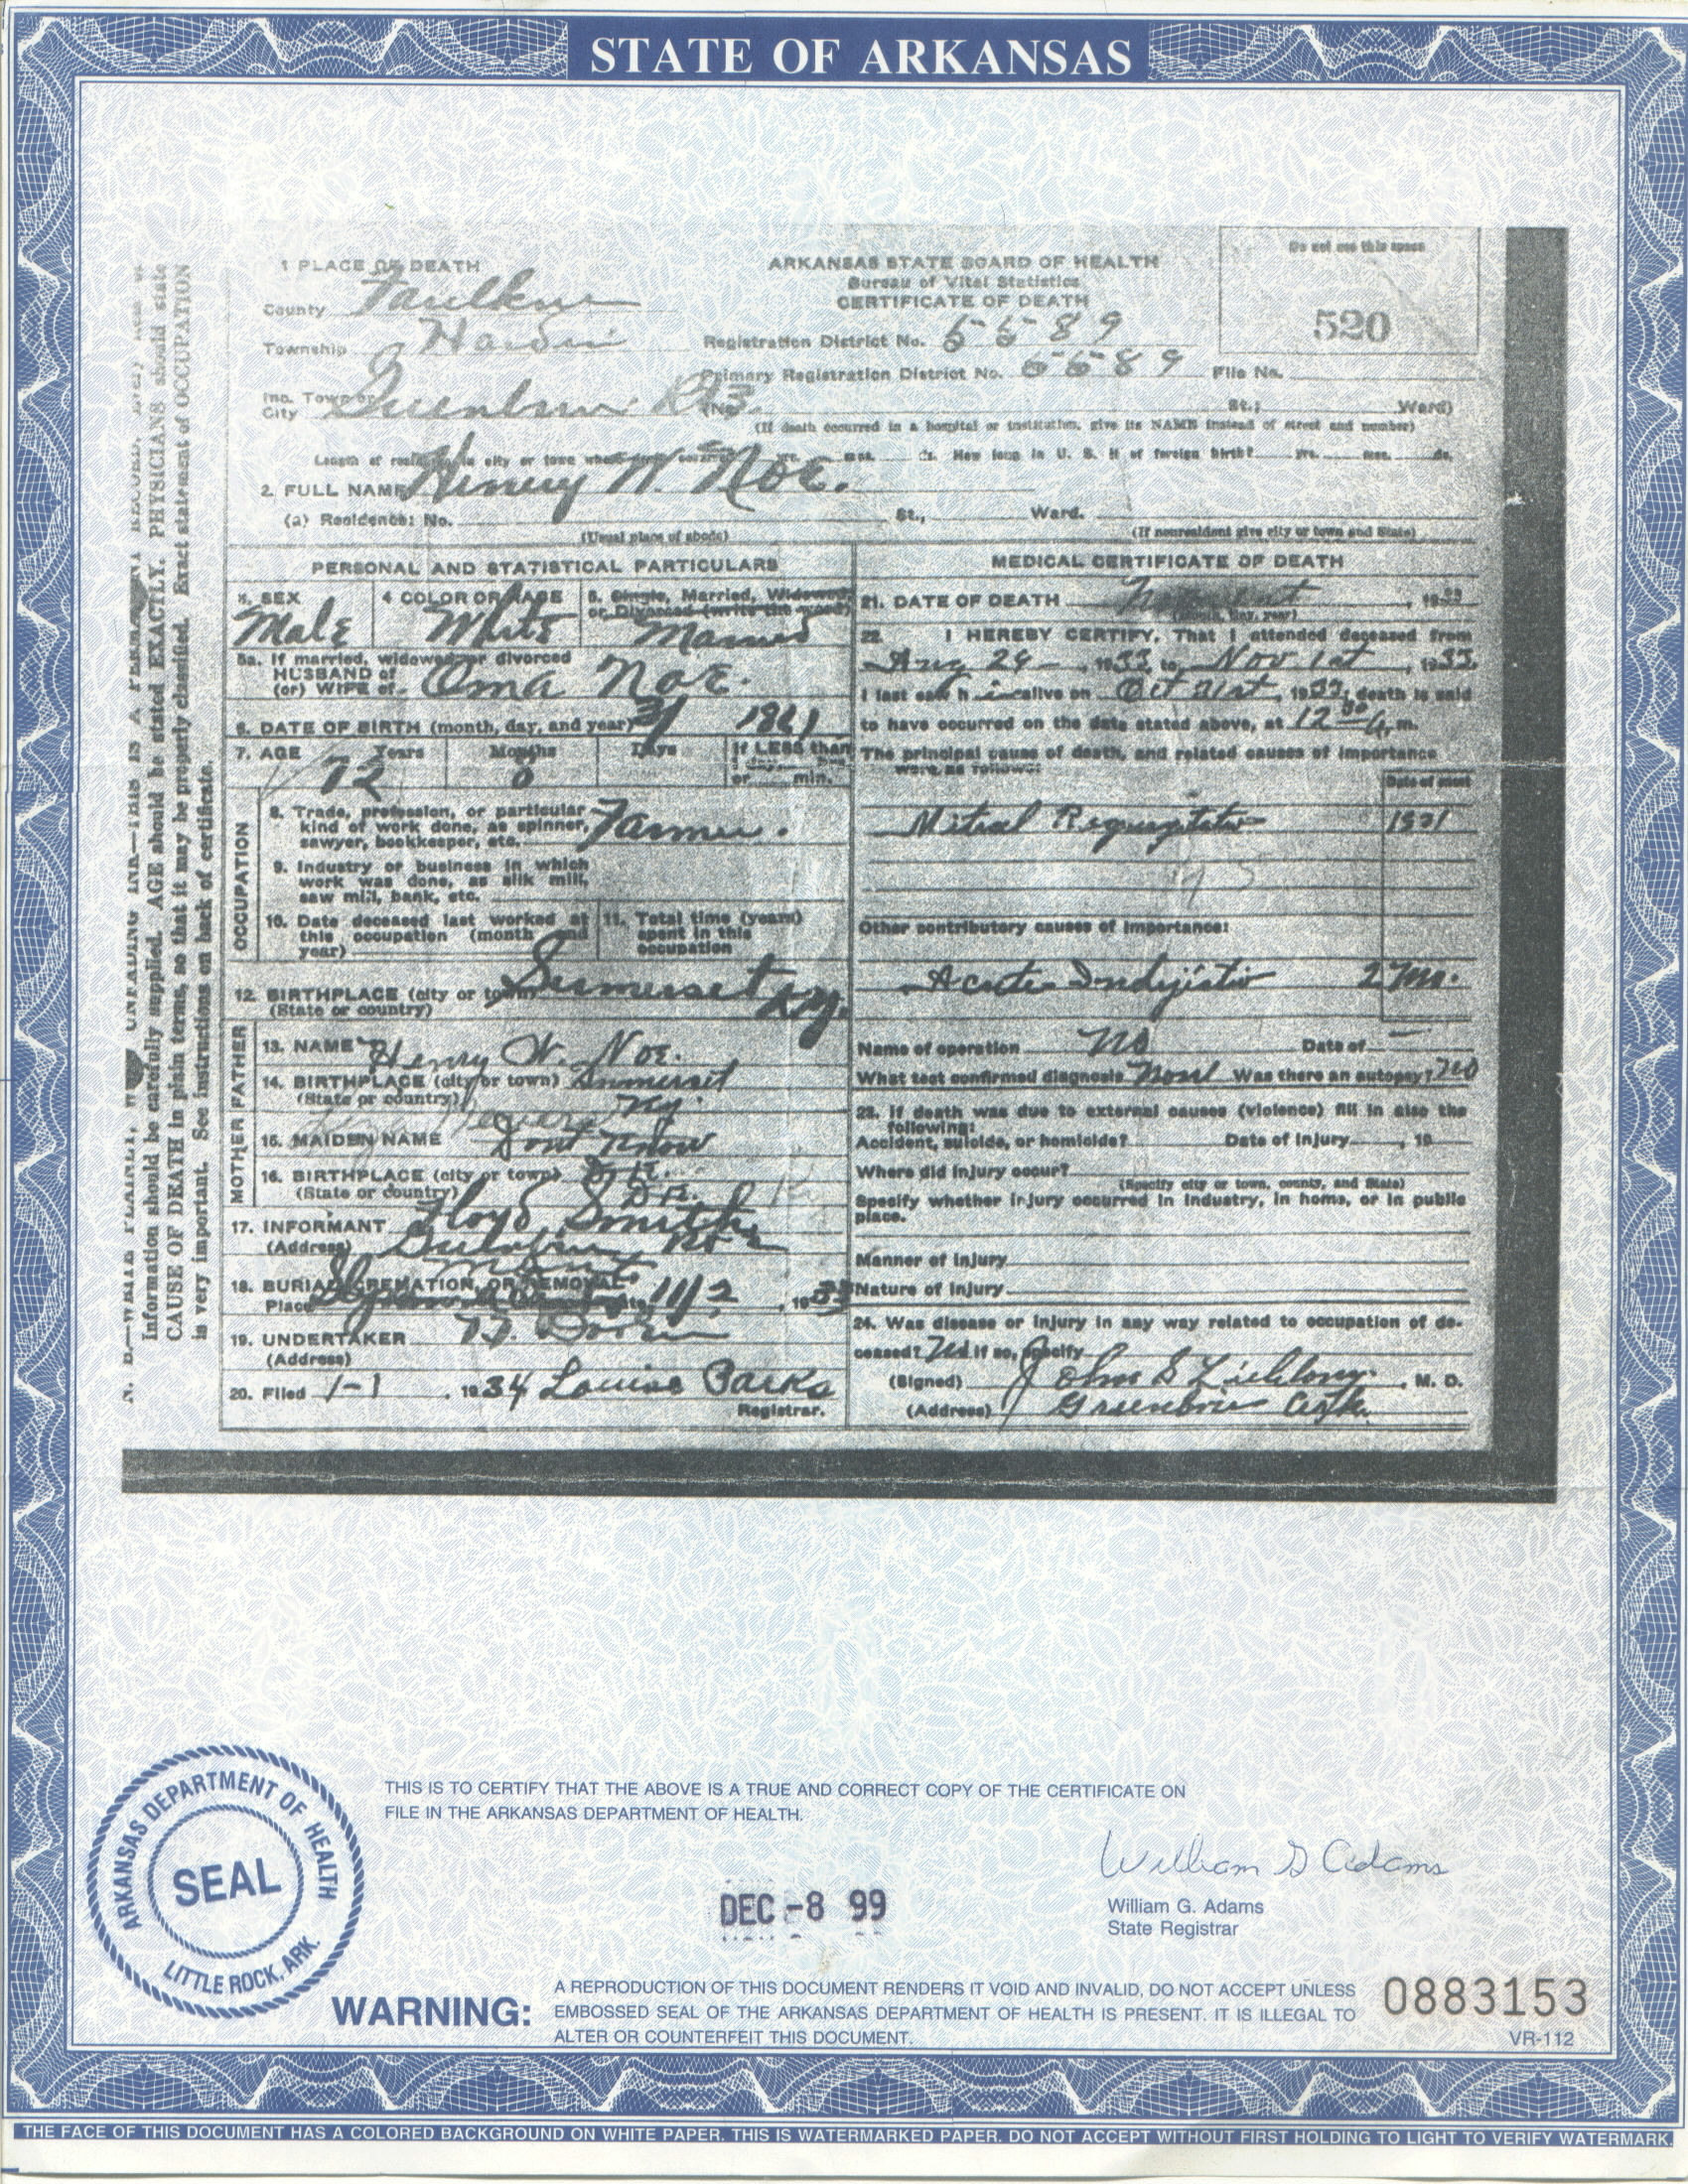 STATE OF ARKANSAS
1 PLACE OF DEATH
County Faulkner
Township Hardin
Inc. Town or City Greenbrier Rt 3 (No. St.; Ward)
ARKANSAS STATE BOARD OF HEALTH
Bureau of Vital Statistics
CERTIFICATE OF DEATH
Registration District No. 5589
Primary Registration District No. 5589 File No.
Do not use this space
520
(If death occurred in a hospital or institution, give its NAME instead of street and number)
Length of residence in city or town where death occurred yrs. mos. ds. How long in U. S. if of foreign birth? yrs. mos. ds.
2. FULL NAME Henery W. Noe.
(a) Residence: No. St., Ward.
(Usual place of abode) (If nonresident give city or town and State)
PERSONAL AND STATISTICAL PARTICULARS
3. SEX Male
4 COLOR OR RACE White
5. Single, Married, Widowed, or Divorced (write the word) Married
5a. If married, widowed or divorced
HUSBAND of
(or) WIFE of Oma Noe.
6. DATE OF BIRTH (month, day, and year) 1861
7. AGE Years 72 Months 0 Days If LESS than 1 day, or min.
OCCUPATION
8. Trade, profession, or particular
kind of work done, as spinner,
sawyer, bookkeeper, etc. Farmer.
9. Industry or business in which
work was done, as silk mill,
saw mill, bank, etc.
10. Date deceased last worked at
this occupation (month and
year)
11. Total time (years)
spent in this
occupation
12. BIRTHPLACE (city or town) Sumerset Ky.
(State or country)
FATHER
13. NAME Henry W. Noe.
14. BIRTHPLACE (city or town) Summerset
(State or country) Ky.
MOTHER
15. MAIDEN NAME Dont Know
16. BIRTHPLACE (city or town) D K.
(State or country) D K.
17. INFORMANT Floyd Smith
(Address) Greenbrier Rt 3
18. BURIAL, CREMATION, OR REMOVAL
Place Date 11/2, 1933
19. UNDERTAKER
(Address)
20. Filed 1-1, 1934 Louise Parks
Registrar.
MEDICAL CERTIFICATE OF DEATH
21. DATE OF DEATH Nov 1st, 1933
(Month, day, year)
22. I HEREBY CERTIFY, That I attended deceased from
Aug 24, 1933 to Nov 1st, 1933.
I last saw him alive on Oct 31st, 1933; death is said
to have occurred on the date stated above, at 12 30 a. m.
The principal cause of death, and related causes of importance
were as follows:
Date of onset
Mitral Regurgitation 1931
Other contributory causes of importance:
Acute Indigestion 2 Mo.
Name of operation No Date of —
What test confirmed diagnosis None Was there an autopsy? no
23. If death was due to external causes (violence) fill in also the
following:
Accident, suicide, or homicide? Date of injury , 19
Where did injury occur?
(Specify city or town, county, and State)
Specify whether injury occurred in industry, in home, or in public
place.
Manner of injury
Nature of injury
24. Was disease or injury in any way related to occupation of de-
ceased? No If so, specify
(Signed) M. D.
(Address) Greenbrier Ark.
Information should be carefully supplied. AGE should be stated EXACTLY. PHYSICIANS should state
CAUSE OF DEATH in plain terms, so that it may be properly classified. Exact statement of OCCUPATION
is very important. See instructions on back of certificate.
THIS IS TO CERTIFY THAT THE ABOVE IS A TRUE AND CORRECT COPY OF THE CERTIFICATE ON
FILE IN THE ARKANSAS DEPARTMENT OF HEALTH.
ARKANSAS DEPARTMENT OF HEALTH
SEAL
LITTLE ROCK, ARK.
DEC -8 99
William G Adams
William G. Adams
State Registrar
WARNING:
A REPRODUCTION OF THIS DOCUMENT RENDERS IT VOID AND INVALID, DO NOT ACCEPT UNLESS
EMBOSSED SEAL OF THE ARKANSAS DEPARTMENT OF HEALTH IS PRESENT. IT IS ILLEGAL TO
ALTER OR COUNTERFEIT THIS DOCUMENT.
0883153
VR-112
THE FACE OF THIS DOCUMENT HAS A COLORED BACKGROUND ON WHITE PAPER. THIS IS WATERMARKED PAPER. DO NOT ACCEPT WITHOUT FIRST HOLDING TO LIGHT TO VERIFY WATERMARK.